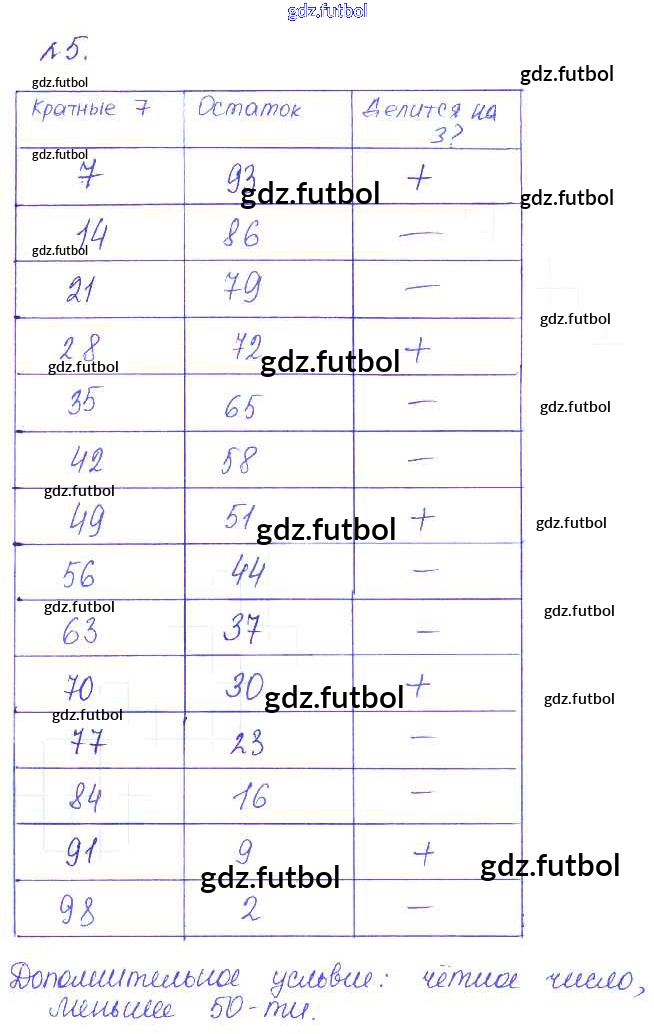 gdz.futbol
№5.
gdz.futbol
gdz.futbol
Кратные 7 Остаток Делится на
3?
gdz.futbol
7 93 +
gdz.futbol
gdz.futbol
14 86 —
gdz.futbol
21 79 —
gdz.futbol
28 72 +
gdz.futbol
gdz.futbol
35 65 —
gdz.futbol
42 58 —
gdz.futbol
49 51 +
gdz.futbol
gdz.futbol
56 44 —
gdz.futbol
gdz.futbol
63 37 —
70 30 +
gdz.futbol
gdz.futbol
gdz.futbol
77 23 —
84 16 —
91 9 +
gdz.futbol
gdz.futbol
98 2 —
Дополнительное условие: чётное число,
меньшее 50-ти.